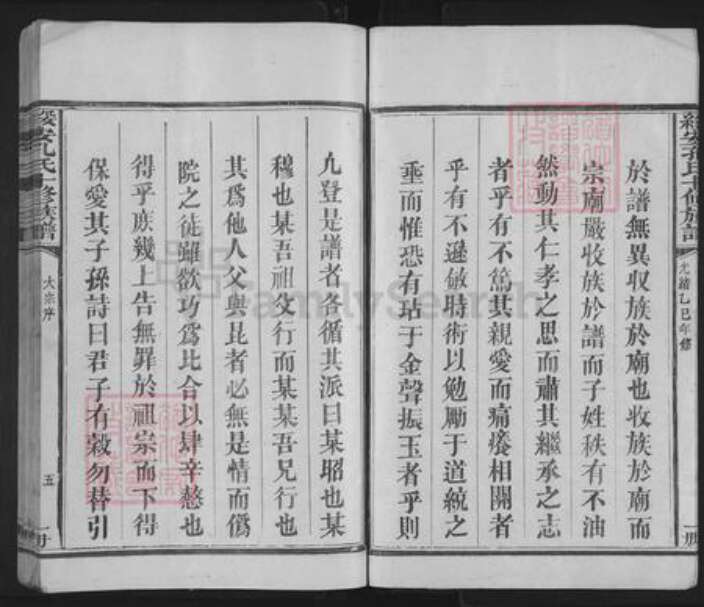 於譜無異収族於廟也收族於廟而
宗廟嚴收族於譜而子姓秩有不油
然動其仁孝之思而肅其繼承之志
者乎有不篤其親愛而痛癢相關者
乎有不遜敏時術以勉勵于道統之
垂而惟恐有玷于金聲振玉者乎則
光緒乙巳年修
凢登是譜者各循其派曰某昭也某
穆也某吾祖父行而某某吾兄行也
其爲他人父與昆者必無是情而僞
院之徒雖欲巧爲比合以肆辛憗也
得乎庻幾上告無罪於祖宗而下得
保愛其子孫詩曰君子有穀勿替引
綏安孔氏十修族譜
大宗序
五
FamilySearch